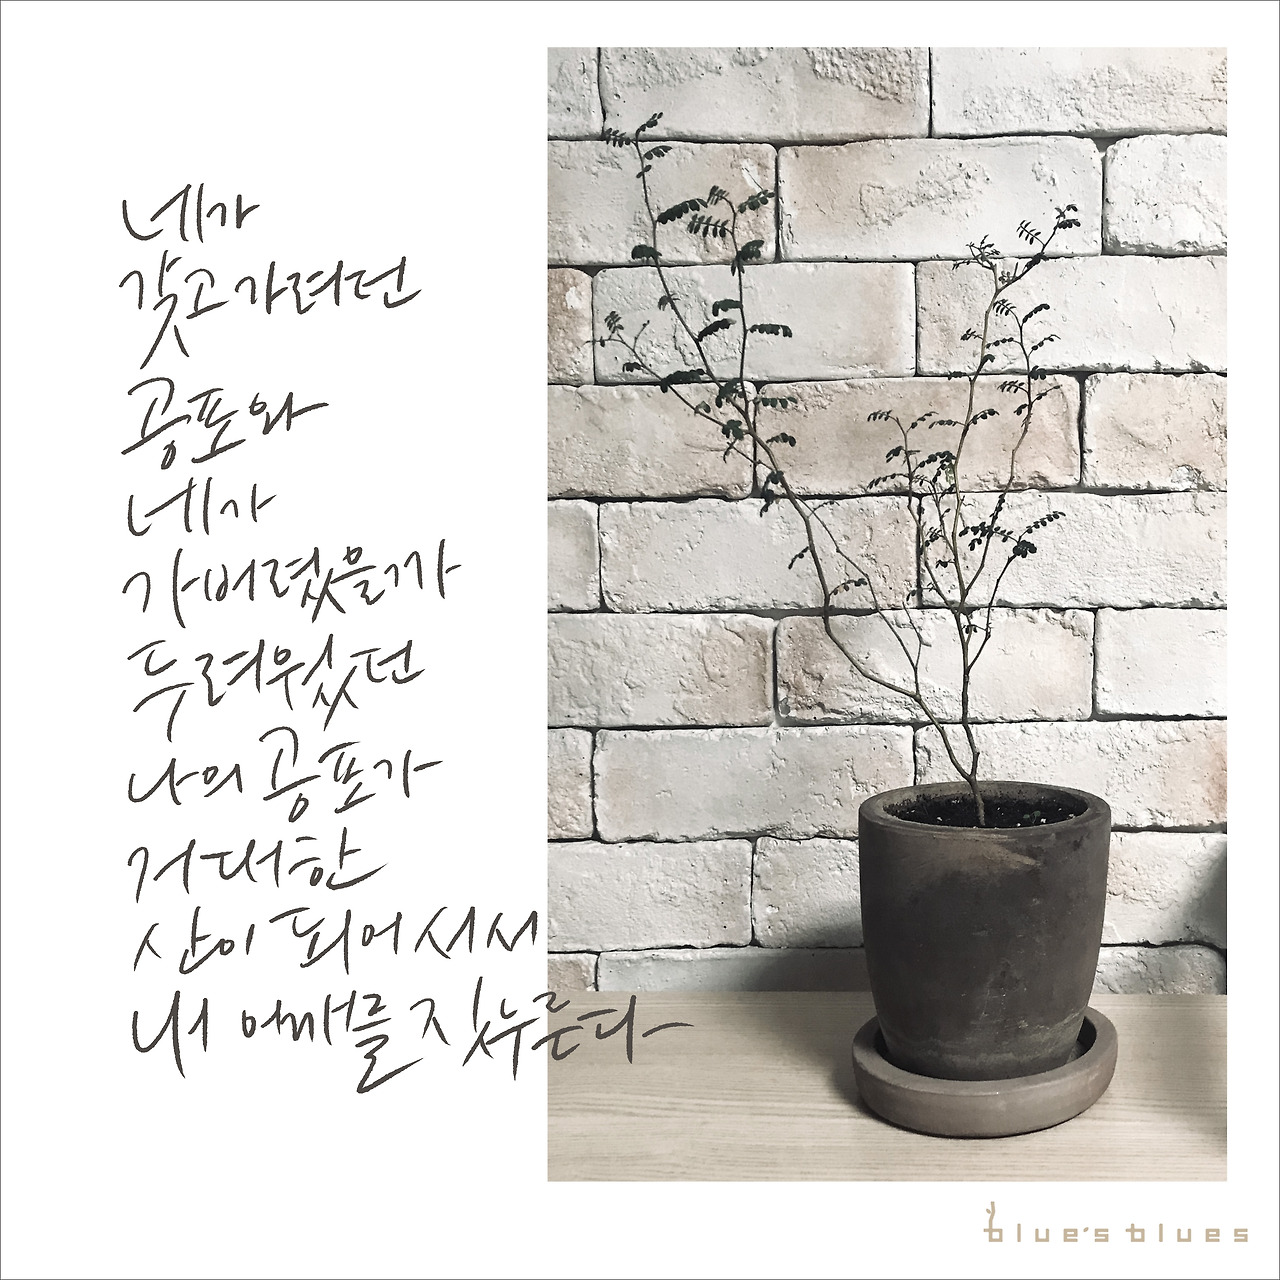 네가
갖고가려던
공포와
네가
가버렸을까
두려웠던
나의 공포가
거대한
산이 되어 서서
내 어깨를 짓누른다
blue's blues